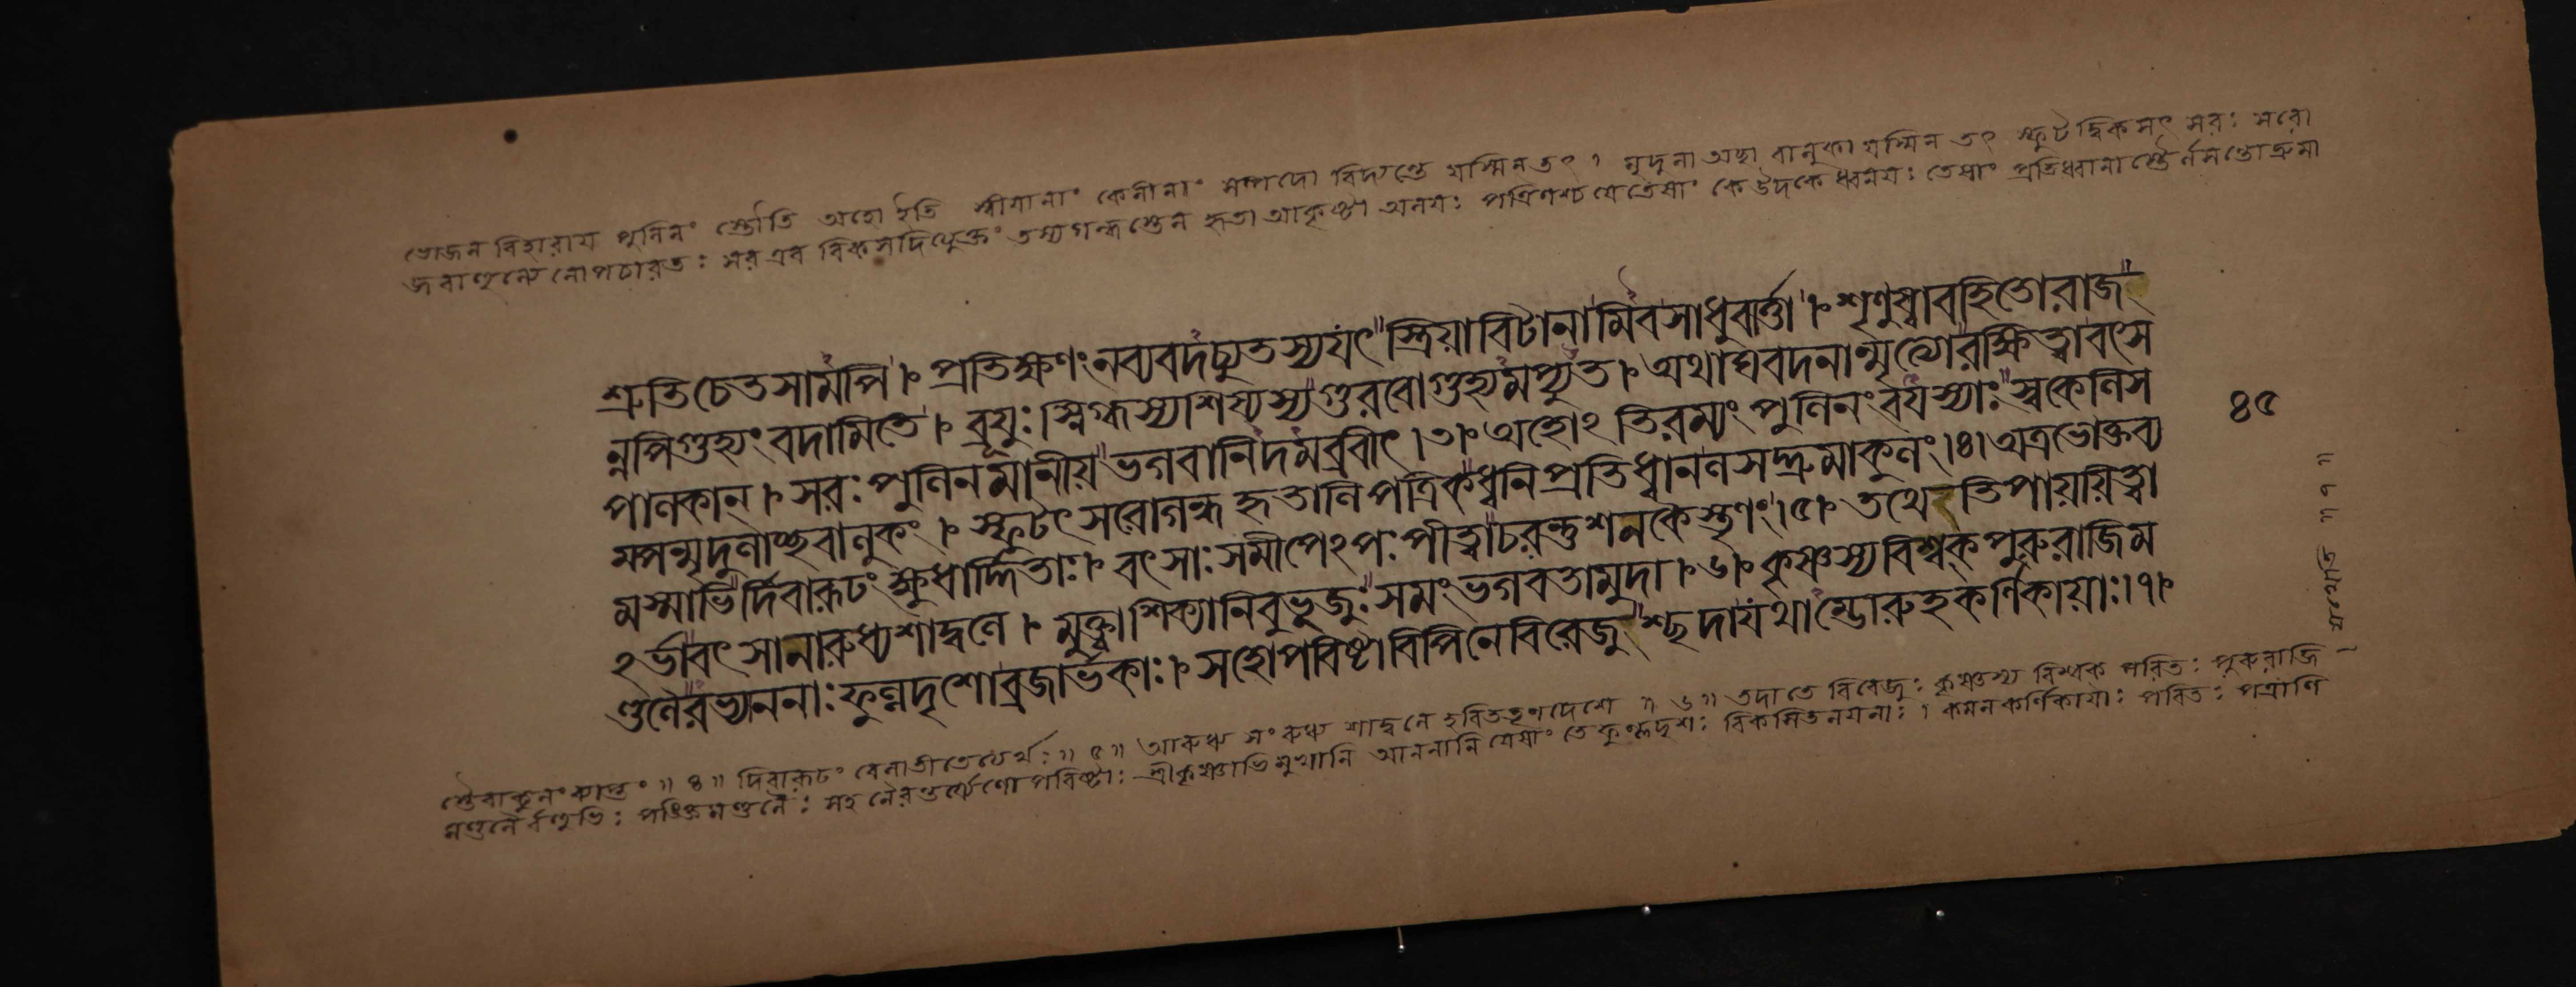 ভোজন বিহারায় পুলিনং স্তৌতি অহো ইতি স্বীয়ানাং কেলীনাং সম্পদো বিদ্যন্তে যস্মিন তৎ । মৃদুলা অচ্ছা বালুকা যস্মিন তৎ স্ফুটদ্বিকসৎ সরঃ সরো
জবাহুল্যেনোপচারতঃ সর এব বিকসদিত্যুক্তং তস্য গন্ধস্তেন হৃতা আকৃষ্টা অলয়ঃ পত্রিণশ্চ যে তেষাং কে উদকে ধ্বনয়ঃ তেষাং প্রতিধ্বানাস্তৈর্লসন্তো দ্রুমা
শ্রুতিচেতসামপি। প্রতিক্ষণং নব্যবদচ্যুতস্য যৎ স্ত্রিয়া বিটানামিব সাধুবার্ত্তা। শৃণুষ্বাবহিতো রাজ
ন্নপি গুহ্যং বদামি তে। ব্রূয়ুঃ স্নিগ্ধস্য শিষ্যস্য গুরবো গুহ্যমপ্যুত। অথাঘবদনান্মৃত্যো রক্ষিত্বা বৎস
পালকান্। সরঃ পুলিনমানীয় ভগবানিদমব্রবীৎ।৩। অহোঽতিরম্যং পুলিনং বয়স্যাঃ স্বকেলিস
ম্পন্মৃদুলাচ্ছবালুকং। স্ফুটৎ সরোগন্ধ হৃতালি পত্রিকধ্বনি প্রতিধ্বানলসদ্দ্রুমাকুলং।৪। অত্র ভোক্তব্য
মস্মাভির্দিবারূঢং ক্ষুধার্দ্দিতাঃ। বৎসাঃ সমীপেঽপঃ পীত্বা চরন্তু শনকৈস্তৃণং।৫। তথেতি পায়য়িত্বা
ঽর্ভা বৎসানারুধ্য শাদ্বলে। মুক্ত্বা শিক্যানি বুভুজুঃ সমং ভগবতা মুদা।৬। কৃষ্ণস্য বিশ্বক্ পুরুরাজিম
ণ্ডলৈরভ্যাননাঃ ফুল্লদৃশো ব্রজার্ভকাঃ। সহোপবিষ্টা বিপিনে বিরেজুশ্ছদা যথাম্ভোরুহকর্ণিকায়াঃ।৭।
৪৫
স্তৈরাকুলং ব্যাপ্তং ॥ ৪ ॥ দিবারূঢং বেলাতীতেত্যর্থঃ ॥ ৫ ॥ আরুধ্য সংরুধ্য শাদ্বলে হরিততৃণদেশে ॥ ৬ ॥ তদা তে বিরেজুঃ কৃষ্ণস্য বিশ্বক্ পরিতঃ পুরুরাজি
মণ্ডলৈর্বহুভিঃ পঙক্তিমণ্ডলৈঃ সহ নৈরন্তর্য্যেণোপবিষ্টাঃ শ্রীকৃষ্ণাভিমুখানি আননানি যেষাং তে ফুল্লদৃশঃ বিকসিতনয়নাঃ । কমলকর্ণিকায়াঃ পরিতঃ পত্রাণি
॥ ৭ ॥